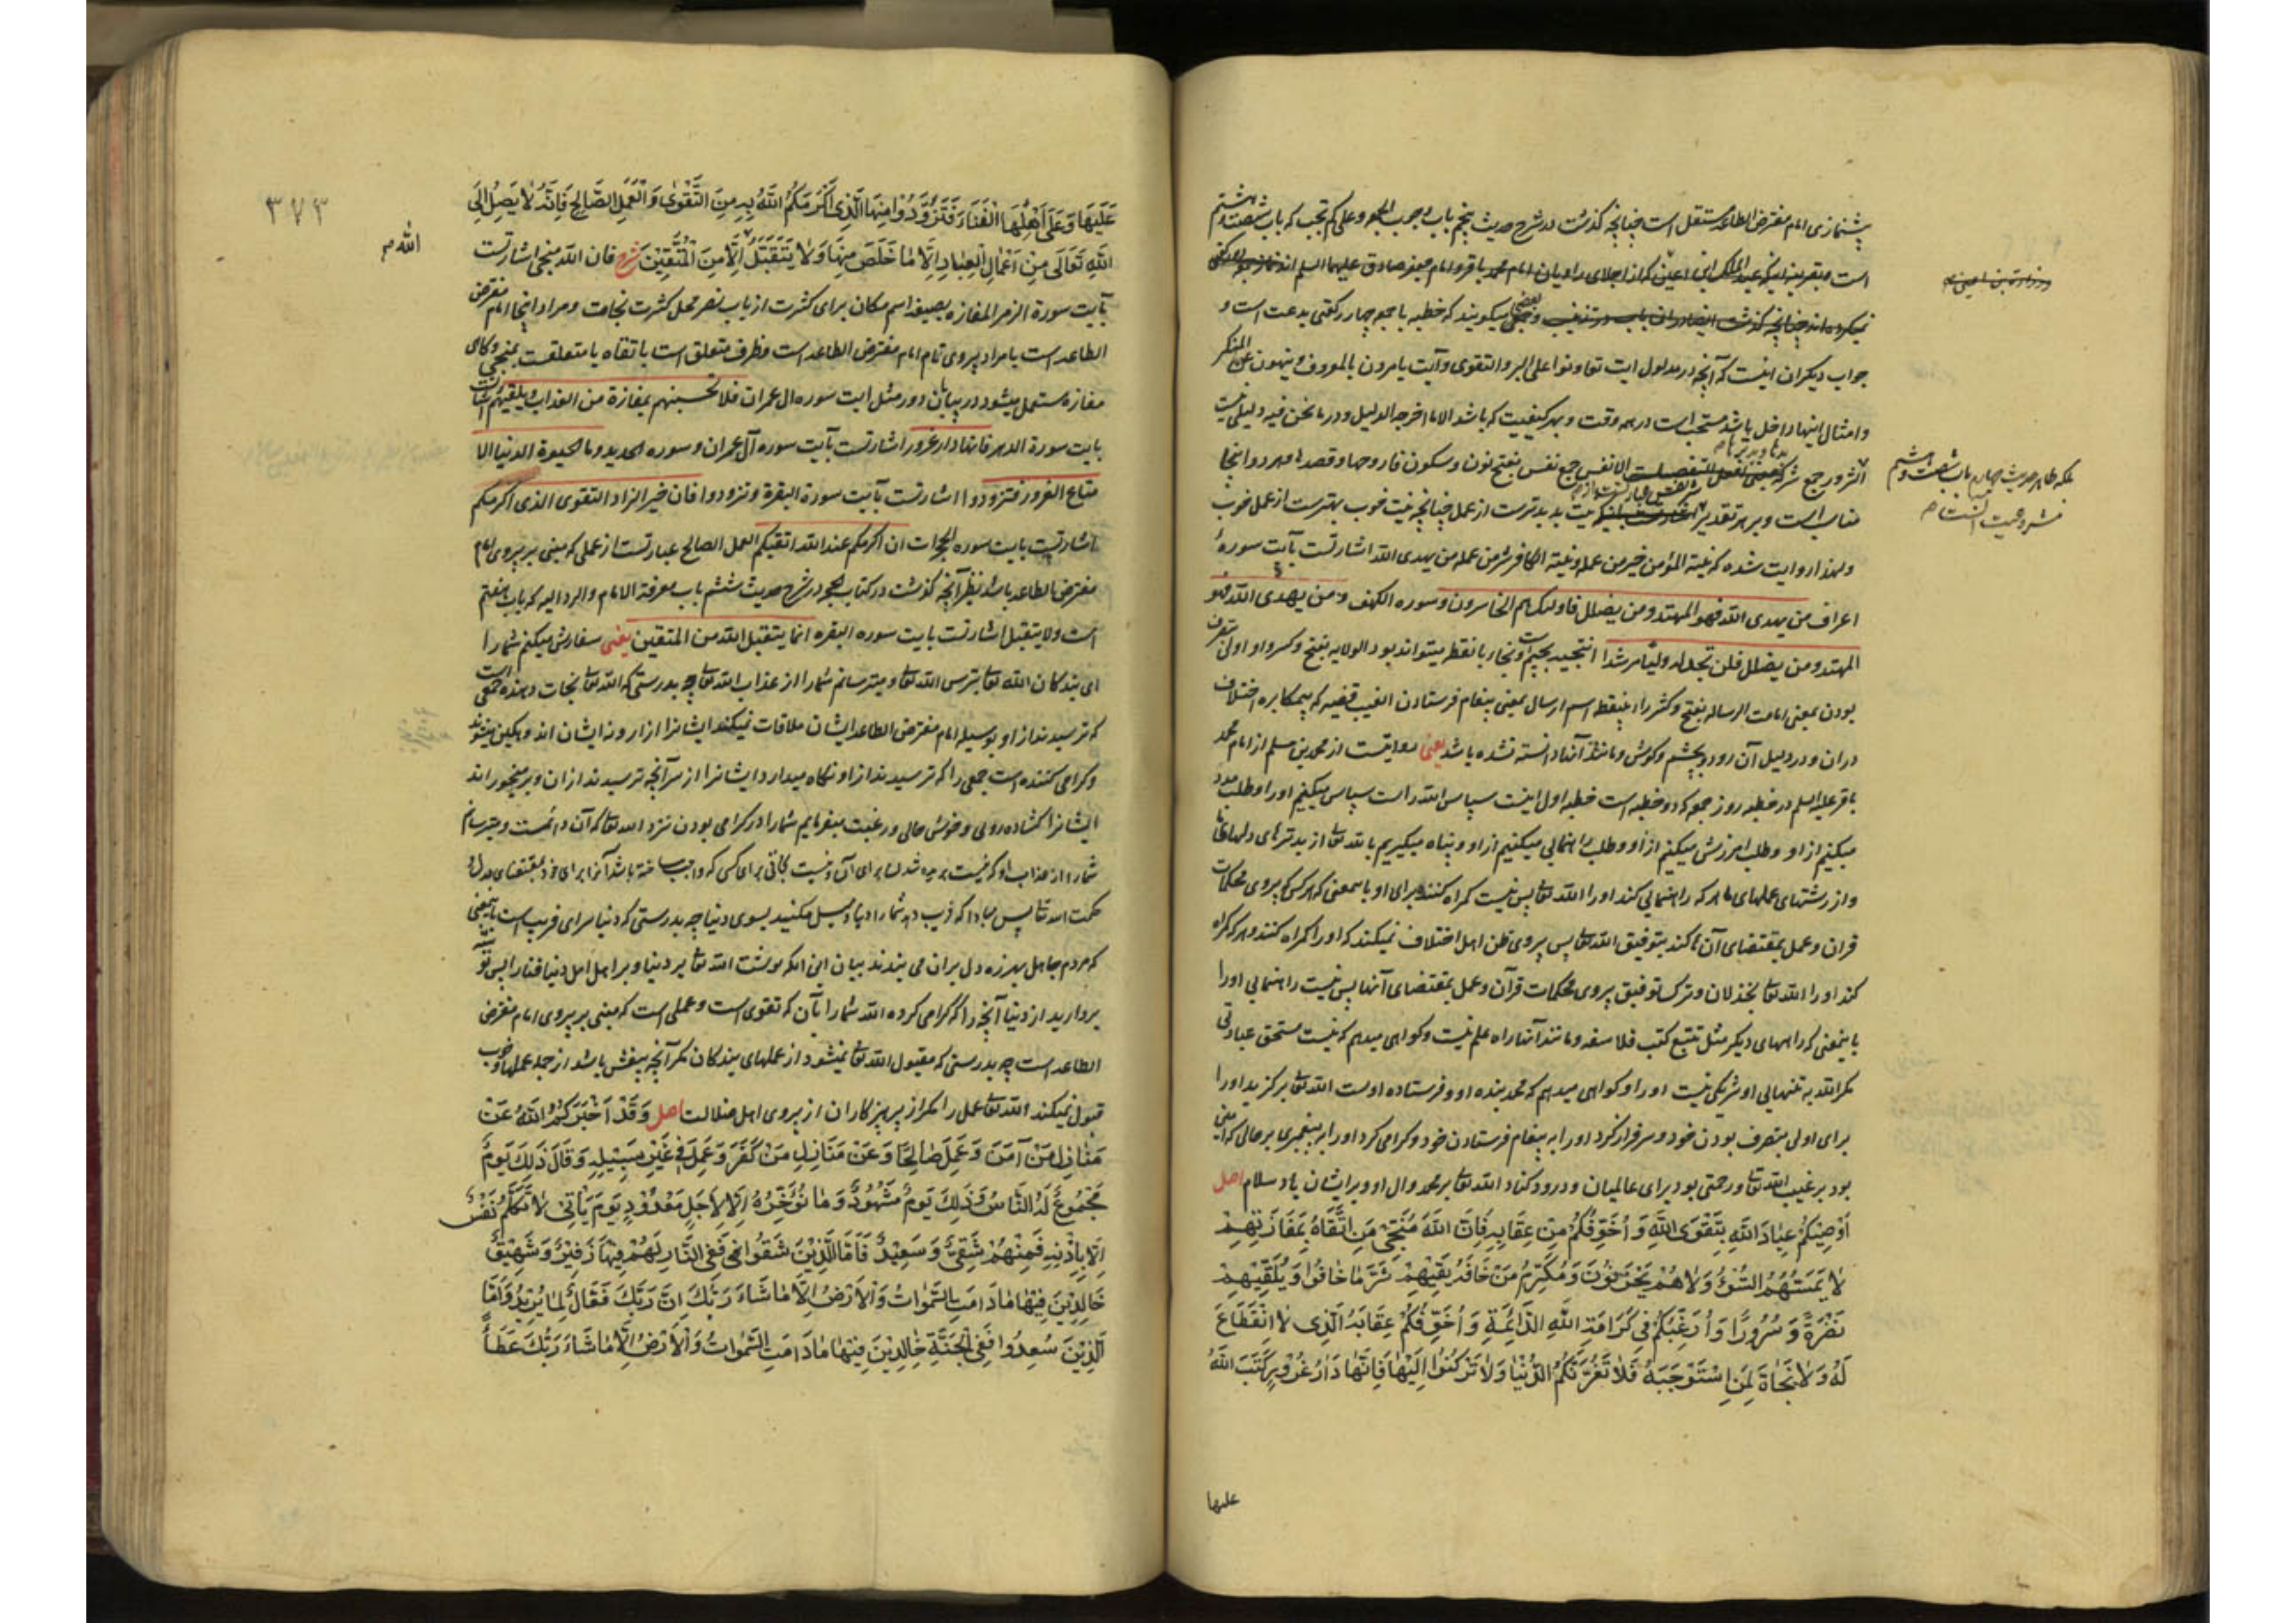 پشنمازی امام مفترض الطاعة مستقل است چنانچه گذشت در شرح حدیث پنجم باب وجوب الجمعه وعلی کم تجب که باب شصت و هشتم
است
نمیکرده اند چنانچه گذشت و بعضی میگویند که خطبه با جمعه چهار رکعتی بدعت است و
جواب دیگران اینست که آنچه در مدلول ایت تعاونوا علی البر والتقوی وآیت یامرون بالمعروف وینهون عن المنکر
وامثال اینها داخل باشد مستحب است در همه وقت وبهر کیفیت که باشد الا ما اخرجه الدلیل ودر ما نحن فیه دلیلی نیست
الشرور جمع شر الانفس جمع نفس بفتح نون وسکون فا روحها وقصدها وهر دو اینجا
مناسب است وبر هر تقدیر نیت بد بدترست از عمل چنانچه نیت خوب بهترست از عمل خوب
ولهذا روایت شده که نیة المؤمن خیر من عمله ونیة الکافر شر من عمله من یهدی الله اشارتست بآیت سورهٔ
اعراف من یهدی الله فهو المهتد ومن یضلل فاولئک هم الخاسرون وسوره الکهف ومن یهدی الله فهو
المهتد ومن یضلل فلن تجد له ولیا مرشدا انتجبه بجیم ونجار با نقط میتواند بود الولایه بفتح وکسر واو اولی بتصرف
بودن بمعنی امامت الرساله بفتح وکسر راء بینقطه اسم ارسال بمعنی بپیغام فرستادن الغیب قضیه که بیمکابره اختلاف
دران ودر دلیل آن رود وبچشم وگوش ومانند آنها دانسته نشده باشد یعنی روایتست از محمد بن مسلم از امام محمد
باقر علیه السلم در خطبه روز جمعه که دو خطبه است خطبه اول اینست سپاس الله راست سپاس میکنیم اورا وطلب مدد
میکنیم از او وطلب امرزش میکنیم از او وطلب راهنمایی میکنیم از او وپناه میگیریم بالله تعالی از بدترهای دلهای ما
واز زشتهای عملهای ما هر که راهنمایی کند اورا الله تعالی پس نیست گمراه کننده برای او باینمعنی که هر کس که پیروی محکمات
قران وعمل بمقتضای آن ها کند بتوفیق الله تعالی پس پیروی ظن اهل اختلاف نمیکند که اورا گمراه کنند وهر که گمراه
کند اورا الله تعالی بخذلان وترک توفیق پیروی محکمات قرآن وعمل بمقتضای آنها پس نیست راهنمایی اورا
باینمعنی که راههای دیگر مثل تتبع کتب فلاسفه ومانند آنها راه علم نیست وگواهی میدهم که نیست مستحق عبادتی
مگر الله به تنهایی او شریکی نیست اورا وگواهی میدهم که محمد بنده او وفرستاده اوست الله تعالی برگزید اورا
برای اولی بتصرف بودن خود وسرفراز کرد اورا به پیغام فرستادن خود وگرامی کرد اورا بر پیغمبری بر حالی که امین
بود بر غیب الله تعالی ورحمتی بود برای عالمیان ودرود کناد الله تعالی بر محمد وال او وبر ایشان باد سلام اصل
اُوصِیْکُمْ عِبَادَ اللهِ بِتَقْوَی اللهِ وَ اُخَوِّفُکُمْ مِنْ عِقَابِهِ فَاِنَّ اللهَ مُنْجِی مَنِ اتَّقَاهُ بِمَفَازَتِهِمْ
لَا یَمَسُّهُمُ السُّوْءُ وَلَا هُمْ یَحْزَنُوْنَ وَمُکْرِمُ مَنْ خَافَهُ یَقِیْهِمْ شَرَّ مَا خَافُوْا وَیُلَقِّیْهِمْ
نَضْرَةً وَسُرُورًا وَاُرَغِّبُکُمْ فِی کَرَامَةِ اللهِ الدَّائِمَةِ وَاُخَوِّفُکُمْ عِقَابَهُ الَّذِی لَا انْقِطَاعَ
لَهُ وَلَا نَجَاةَ لِمَنِ اسْتَوْجَبَهُ فَلَا تَغُرَّنَّکُمُ الدُّنْیَا وَلَا تَرْکَنُوْا اِلَیْهَا فَاِنَّهَا دَارُ غُرُوْرٍ کَتَبَ اللهُ
علیها
بلکه ظاهر حدیث چهارم باب شصت وهشتم
مشروعیت آنست
۳۷۳
الله
عَلَیْهَا وَعَلَی اَهْلِهَا الْفَنَاءَ فَتَزَوَّدُوْا مِنْهَا الَّذِی اَکْرَمَکُمُ اللهُ بِهِ مِنَ التَّقْوٰی وَالْعَمَلِ الصَّالِحِ فَاِنَّهُ لَا یَصِلُ اِلَی
اللهِ تَعَالَی مِنْ اَعْمَالِ الْعِبَادِ اِلَّا مَا خَلَصَ مِنْهَا وَلَا یَتَقَبَّلُ اِلَّا مِنَ الْمُتَّقِیْنَ شرح فان الله منجی اشارتست
بآیت سورة الزمر المفازه بصیغه اسم مکان برای کثرت از باب نصر محل کثرت نجات ومراد اینجا امام مفترض
الطاعه است یا مراد پیروی تام امام مفترض الطاعه است وظرف متعلق است باتقاه یا متعلقست بمنجی وگاهی
مفازه مستعمل میشود در بیابان دور مثل ایت سوره ال عمران فلا تحسبنهم بمفازة من العذاب ویلقیهم اشارتست
بایت سورة الدهر فانها دار غرور اشارتست بآیت سوره آل عمران وسوره الحدید وما الحیوة الدنیا الا
متاع الغرور فتزودوا اشارتست بآیت سورة البقرة وتزودوا فان خیر الزاد التقوی الذی اکرمکم
اشارتست بایت سوره الحجرات ان اکرمکم عند الله اتقیکم العمل الصالح عبارتست از عملی که مبنی بر پیروی امام
مفترض الطاعه باشد نظر آنچه گذشت در کتاب الحجه در شرح حدیث ششم باب معرفة الامام والرد الیه که باب هفتم
است ولا یتقبل اشارتست بایت سوره البقره انما یتقبل الله من المتقین یعنی سفارش میکنم شما را
ای بندگان الله تعالی بترس الله تعالی ومیترسانم شما را از عذاب الله تعالی چه بدرستی که الله تعالی نجات دهنده جمعی است
که ترسیدند از او بوسیله امام مفترض الطاعه ایشان ملاقات نمیکند ایشانرا ازار ونه ایشان اندوهگین میشوند
وگرامی کننده است جمعی را که ترسیدند از او نگاه میدارد ایشانرا از سر آنچه ترسیدند ازان وبر میخوراند
ایشانرا گشاده رویی وخوش حالی ورغبت میفرمایم شما را در گرامی بودن نزد الله تعالی که آن دائمست ومیترسانم
شما را از عذاب او که نیست بریده شدن برای آن ونیست نجاتی برای کسی که واجب ساخته باشد آنرا برای خود بمقتضای عدل و
حکمت الله تعالی پس مبادا که فریب دهد شما را دنیا ومیل مکنید بسوی دنیا چه بدرستی که دنیا سرای فریب است باینمعنی
که مردم جاهل بهرزه دل بران می بندند بیان این انکه نوشت الله تعالی بر دنیا وبر اهل دنیا فنا را پس توشه
بردارید از دنیا آنچه را که گرامی کرده الله شما را بآن که تقوی است وعملی است که مبنی بر پیروی امام مفترض
الطاعه است چه بدرستی که مقبول الله تعالی نمیشود از عملهای بندگان مگر آنچه بیغش باشد از جمله عملها وخوب
قبول نمیکند الله تعالی عمل را مگر از پرهیزکاران از پیروی اهل ضلالت اصل وَقَدْ اَخْبَرَکُمُ اللهُ عَنْ
مَنَازِلِ مَنْ آمَنَ وَعَمِلَ صَالِحًا وَعَنْ مَنَازِلِ مَنْ کَفَرَ وَعَمِلَ فِی غَیْرِ سَبِیْلِهِ وَقَالَ ذٰلِکَ یَوْمٌ
مَجْمُوْعٌ لَهُ النَّاسُ وَذٰلِکَ یَوْمٌ مَشْهُوْدٌ وَمَا نُؤَخِّرُهُ اِلَّا لِاَجَلٍ مَعْدُوْدٍ یَوْمَ یَأْتِی لَا تَکَلَّمُ نَفْسٌ
اِلَّا بِاِذْنِهِ فَمِنْهُمْ شَقِیٌّ وَسَعِیْدٌ فَاَمَّا الَّذِیْنَ شَقُوْا فَفِی النَّارِ لَهُمْ فِیْهَا زَفِیْرٌ وَشَهِیْقٌ
خَالِدِیْنَ فِیْهَا مَا دَامَتِ السَّمٰوَاتُ وَالْاَرْضُ اِلَّا مَا شَاءَ رَبُّکَ اِنَّ رَبَّکَ فَعَّالٌ لِمَا یُرِیْدُ وَاَمَّا
الَّذِیْنَ سُعِدُوْا فَفِی الْجَنَّةِ خَالِدِیْنَ فِیْهَا مَا دَامَتِ السَّمٰوَاتُ وَالْاَرْضُ اِلَّا مَا شَاءَ رَبُّکَ عَطَاءً